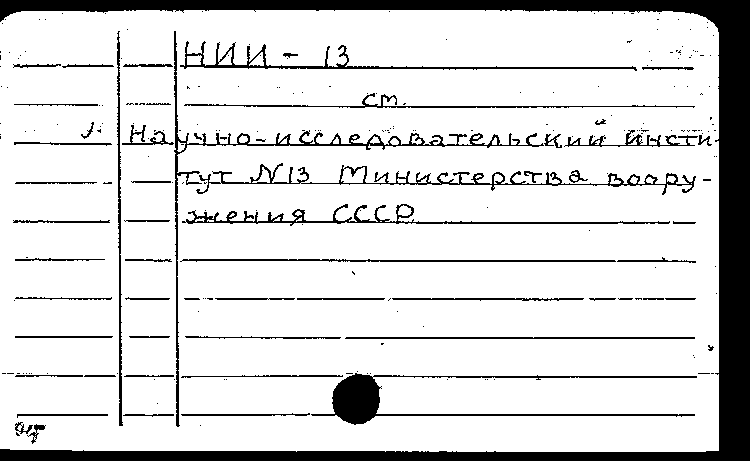 НИИ - 13
ст.
1. Научно-исследовательский инсти-
тут N13 Министерства воору-
жения СССР